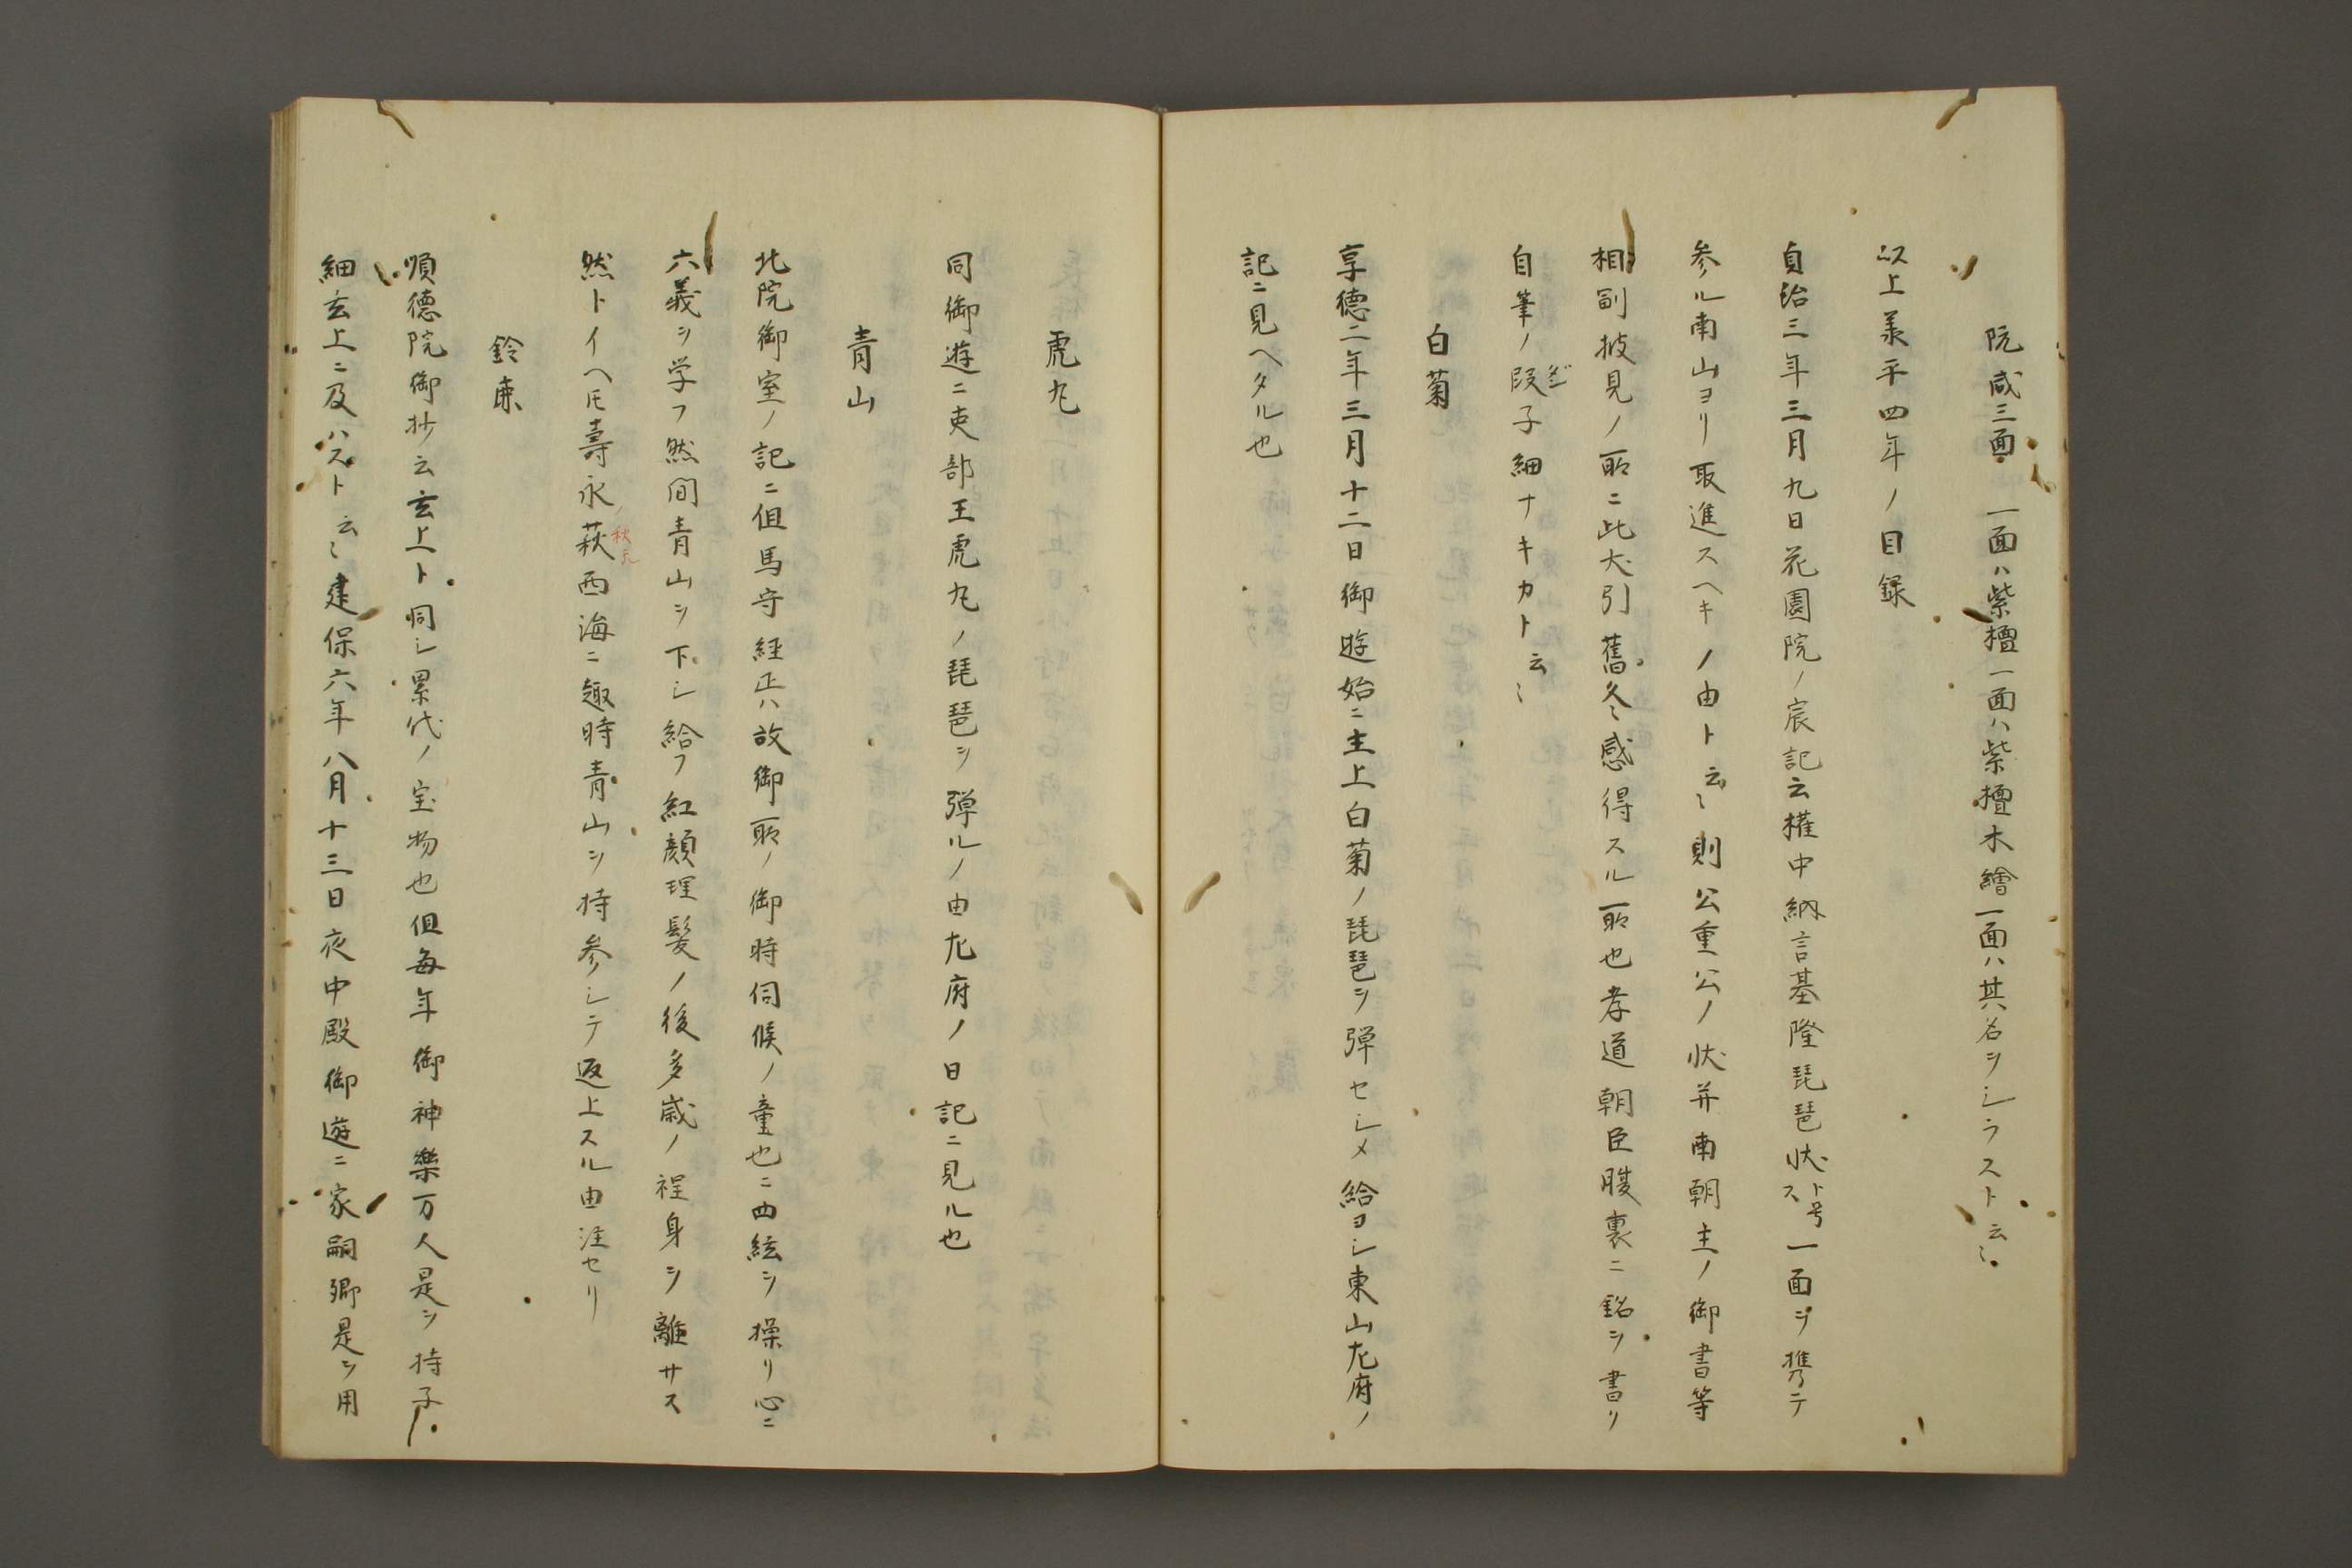 阮咸三面 一面ハ紫檀一面ハ紫檀木繪一面ハ其名ヲシラスト云〻
以上義平四年ノ目録
貞治三年三月九日花園院ノ宸記云権中納言基隆琵琶状ト号ス一面ヲ携テ
参ル南山ヨリ取進スヘキノ由ト云〻則公重公ノ状并南朝主ノ御書等
相副披見ノ所ニ此犬引舊久〻感得スル所也孝道朝臣腹裏ニ銘ヲ書リ
自筆ノ段子細ナキカト云〻
白菊
享徳二年三月十二日御遊始ニ主上白菊ノ琵琶ヲ弾セシメ給ヨシ東山左府ノ
記ニ見ヘタル也
虎丸
同御遊ニ吏部王虎丸ノ琵琶ヲ弾ルノ由左府ノ日記ニ見ル也
青山
北院御室ノ記ニ但馬守経正ハ故御所ノ御時伺候ノ童也ニ四絃ヲ操リ心ニ
六義ヲ学フ然間青山ヲ下シ給フ紅顔理髪ノ後多歳ノ程身ヲ離サス
然トイヘ𪜈壽永ノ萩秋元西海ニ趣時青山ヲ持参シテ返上スル由注セリ
鈴鹿
順徳院御抄云玄上ト同シ累代ノ宝物也但毎年御神樂万人是ヲ持子
細玄上ニ及ハスト云〻建保六年八月十三日夜中殿御遊ニ家嗣卿是ヲ用